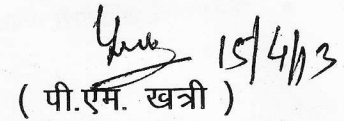 15/4/13
( पी.एम. खत्री )